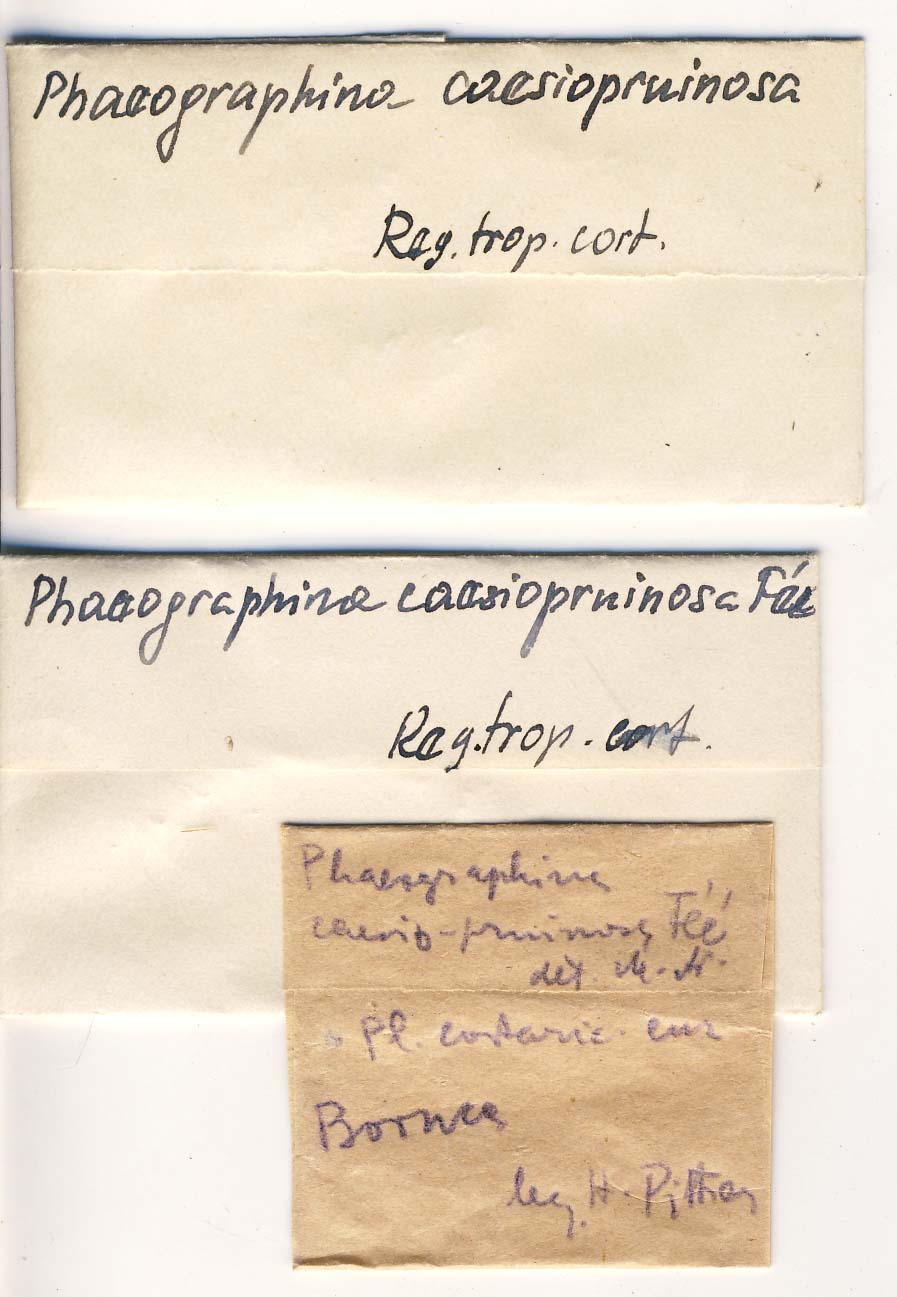 Phaeographina caesiopruinosa
Reg. trop. cort.
Phaeographina caesiopruinosa Fée
Reg. trop. cort.
Phaeographina
caesio-pruinosa Féé
det. M. A.
Pl. costaric. 
Boruca
leg. H. Pittier